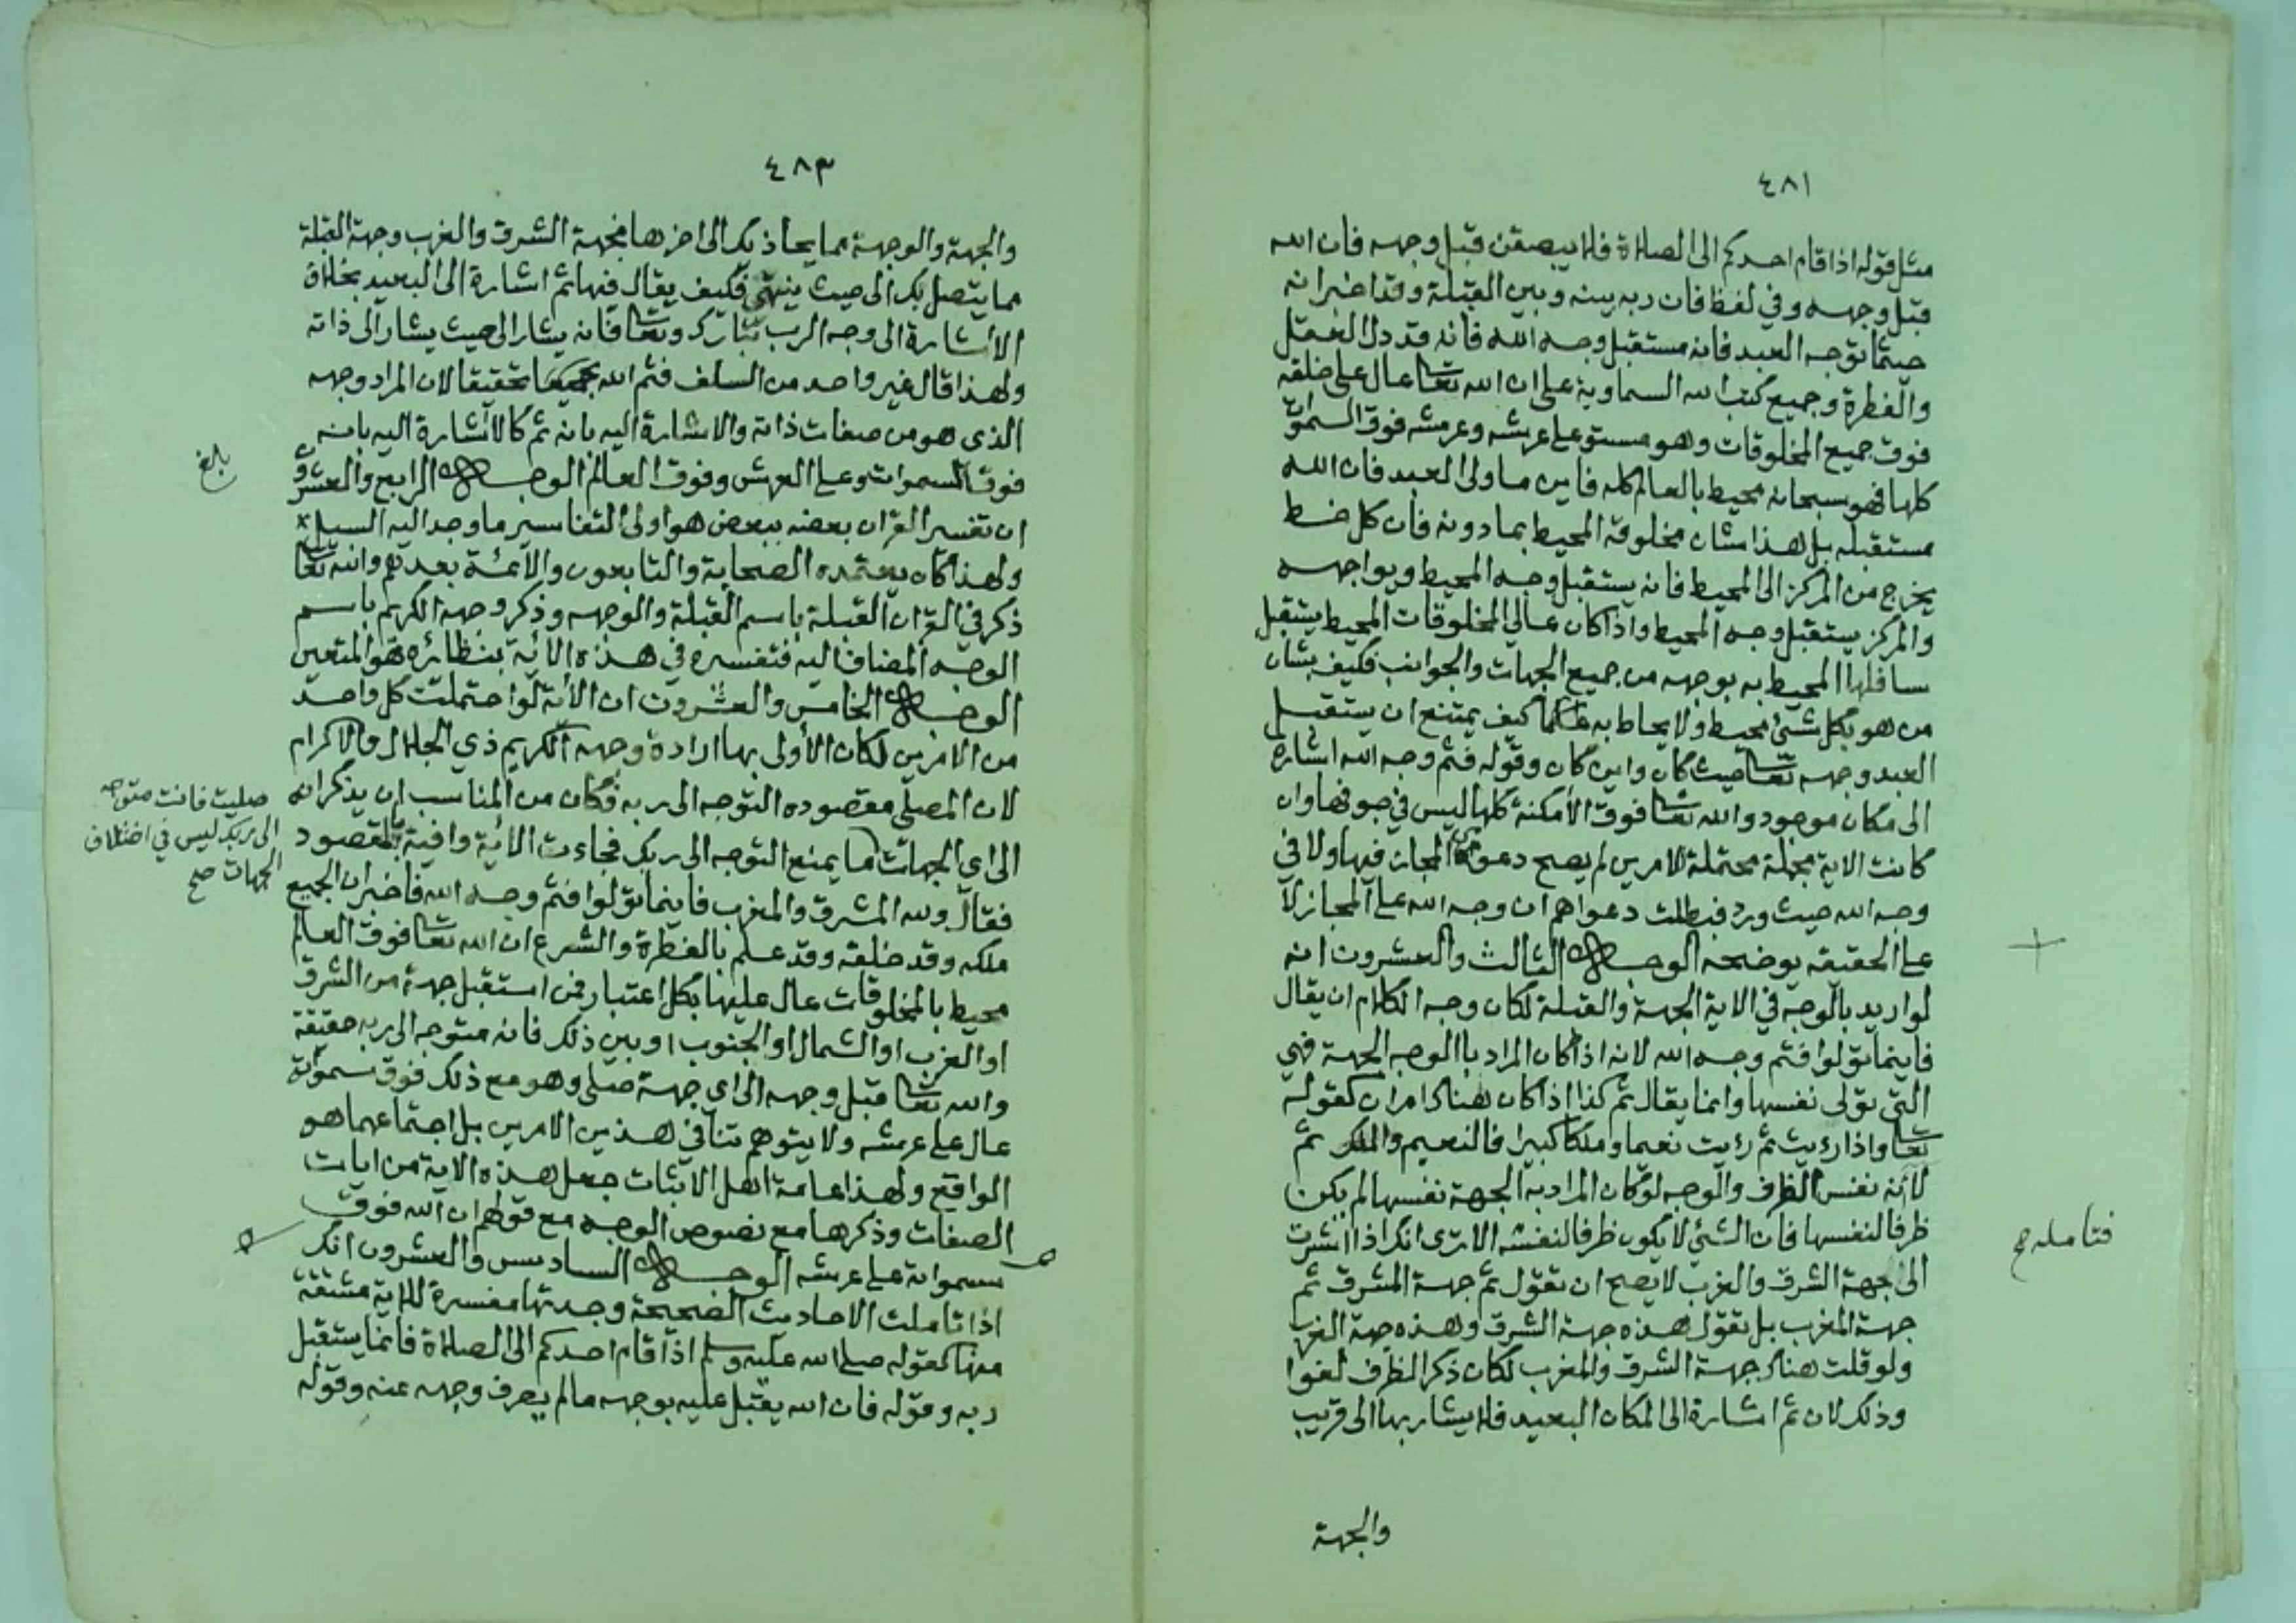 ٤٨١
مثل قوله اذا قام احدكم الى الصلاة فلا يبصقن قبل وجهه فان الله
قبل وجهه وفي لفظ فان ربه بينه وبين القبلة وقد اخبر انه
حيثما توجه العبد فانه مستقبل وجه الله فانه قد دل العقل
والفطرة وجميع كتب الله السماوية على ان الله تعالى عال على خلقه
فوق جميع المخلوقات وهو مستو على عرشه وعرشه فوق السموات
كلها فهو سبحانه محيط بالعالم كله فاين ما ولى العبد فان الله
مستقبله بل هذا شان مخلوقه المحيط بما دونه فان كل خط
يخرج من المركز الى المحيط فانه يستقبل وجه المحيط ويواجهه
والمركز يستقبل وجه المحيط واذا كان عالى المخلوقات المحيط يستقبل
سافلها المحيط به بوجهه من جميع الجهات والجوانب فكيف بشان
من هو بكل شئ محيط ولا يحاط به علما كيف يمتنع ان يستقبل
العبد وجهه تعالى حيث كان واين كان وقوله فثم وجه الله اشارة
الى مكان موجود والله تعالى فوق الامكنة كلها ليس في جوفها وان
كانت الاية مجملة محتملة لامرين لم يصح دعوى المجاز فيها ولا في
وجه الله حيث ورد فبطلت دعواهم ان وجه الله على المجاز لا
على الحقيقه يوضحه الوجه الثالث والعشرون انه
لو اريد بالوجه في الاية الجهة والقبلة لكان وجه الكلام ان يقال
فاينما تولوا فثم وجه الله لانه اذا كان المراد باالوجه الجهة فهي
التي تولى نفسها وانما يقال ثم كذا اذا كان هناك امران كقوله
تعالى واذا رئيت ثم رئيت نعيما وملكا كبيرا فالنعيم والملك ثم
لا انه نفس الظرف والوجه لو كان المراد به الجهة نفسها لم يكن
ظرفا لنفسها فان الشئ لا يكون ظرفا لنفسه الا ترى انك اذا اشرت
الى جهة الشرق والغرب لا يصح ان تقول ثم جهة المشرق ثم
جهة المغرب بل تقول هذه جهة الشرق وهذه جهة الغرب
ولو قلت هناك جهة الشرق والمغرب لكان ذكر الظرف لغوا
وذلك لان ثم اشارة الى المكان البعيد فلا يشار بها الى قريب
والجهة
فتامله صح
٤٨٣
والجهة والوجهة مما يحاذيك الى اخرها فجهة الشرق والغرب وجهة القبلة
مما يتصل بك الى حيث ينتهي فكيف يقال فيها ثم اشارة الى البعيد بخلاف
الاشارة الى وجه الرب تبارك وتعالى فانه يشار الى حيث يشار الى ذاته
ولهذا قال غير واحد من السلف فثم الله تحقيقا لان المراد وجهه
الذى هو من صفات ذاته والاشارة اليه بانه ثم كالاشارة اليه بانه
فوق السموات وعلى العرش وفوق العالم الوجه الرابع والعشرون
ان تفسير القران بعضه ببعض هو اولى التفاسير ما وجد اليه السبيل
ولهذا كان يعتمده الصحابة والتابعون والائمة بعدهم والله تعالى
ذكر في القران القبلة باسم القبلة والوجهه وذكر وجهه الكريم باسم
الوجه المضاف اليه فتفسيره في هذه الاية بنظائره هو المتعين
الوجه الخامس والعشرون ان الاية لو احتملت كل واحد
من الامرين لكان الأولى بها ارادة وجهه الكريم ذي الجلال والاكرام
لان المصلى مقصوده التوجه الى ربه فكان من المناسب ان يذكر انه
الى اي الجهات ما يمنع التوجه الى ربك فجاءت الاية وافية بالمقصود
فقال ولله المشرق والمغرب فاينما تولوا فثم وجه الله فاخبر ان الجميع
ملكه وقد خلقه وقد علم بالفطرة والشرع ان الله تعالى فوق العالم
محيط بالمخلوقات عال عليها بكل اعتبار فمن استقبل جهة من الشرق
او الغرب او الشمال او الجنوب او بين ذلك فانه متوجه الى ربه حقيقة
والله تعالى قبل وجهه الى اي جهة صلى وهو مع ذلك فوق سمواته
عال على عرشه ولا يتوهم تنافي هذين الامرين بل اجتماعهما هو
الواقع ولهذا عامة اهل الاثبات جعل هذه الاية من ايات
الصفات وذكرها مع نصوص الوجه مع قولهم ان الله فوق
سمواته على عرشه الوجه السادس والعشرون انك
اذا تاملت الاحاديث الصحيحة وجدتها مفسرة للاية مشتقة
منها كقوله صلى الله عليه وسلم اذا قام احدكم الى الصلاة فانما يستقبل
ربه وقوله فان الله يقبل عليه بوجهه ما لم يصرف وجهه عنه وقوله
بلغ
صليت فانت متوجه
الى ربك ليس في اختلاف
الجهات صح